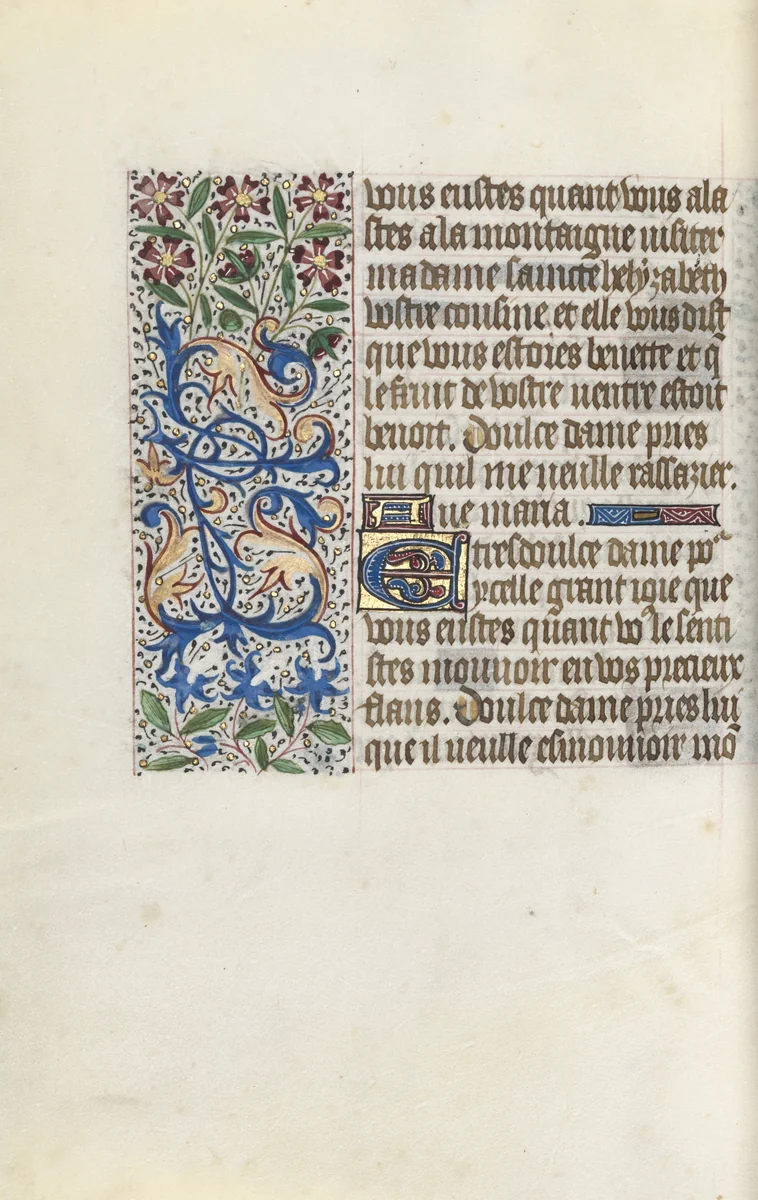 vous eustes quant vous ala
stes ala montaigne uisiter
madame saincte helyzabeth
vostre cousine et elle vous dist
que vous estoies benette et q̄
le fruit de vostre uentre estoit
benoit. Doulce dame pries
lui quil me ueulle rassazier.
Aue maria.
E tresdoulce dame po͛
ycelle grant ioie que
vous eustes quant vo⁹ le senti
stes mouuoir en vos precieux
flans. Doulce dame pries lui
que il ueulle esmouuoir mō